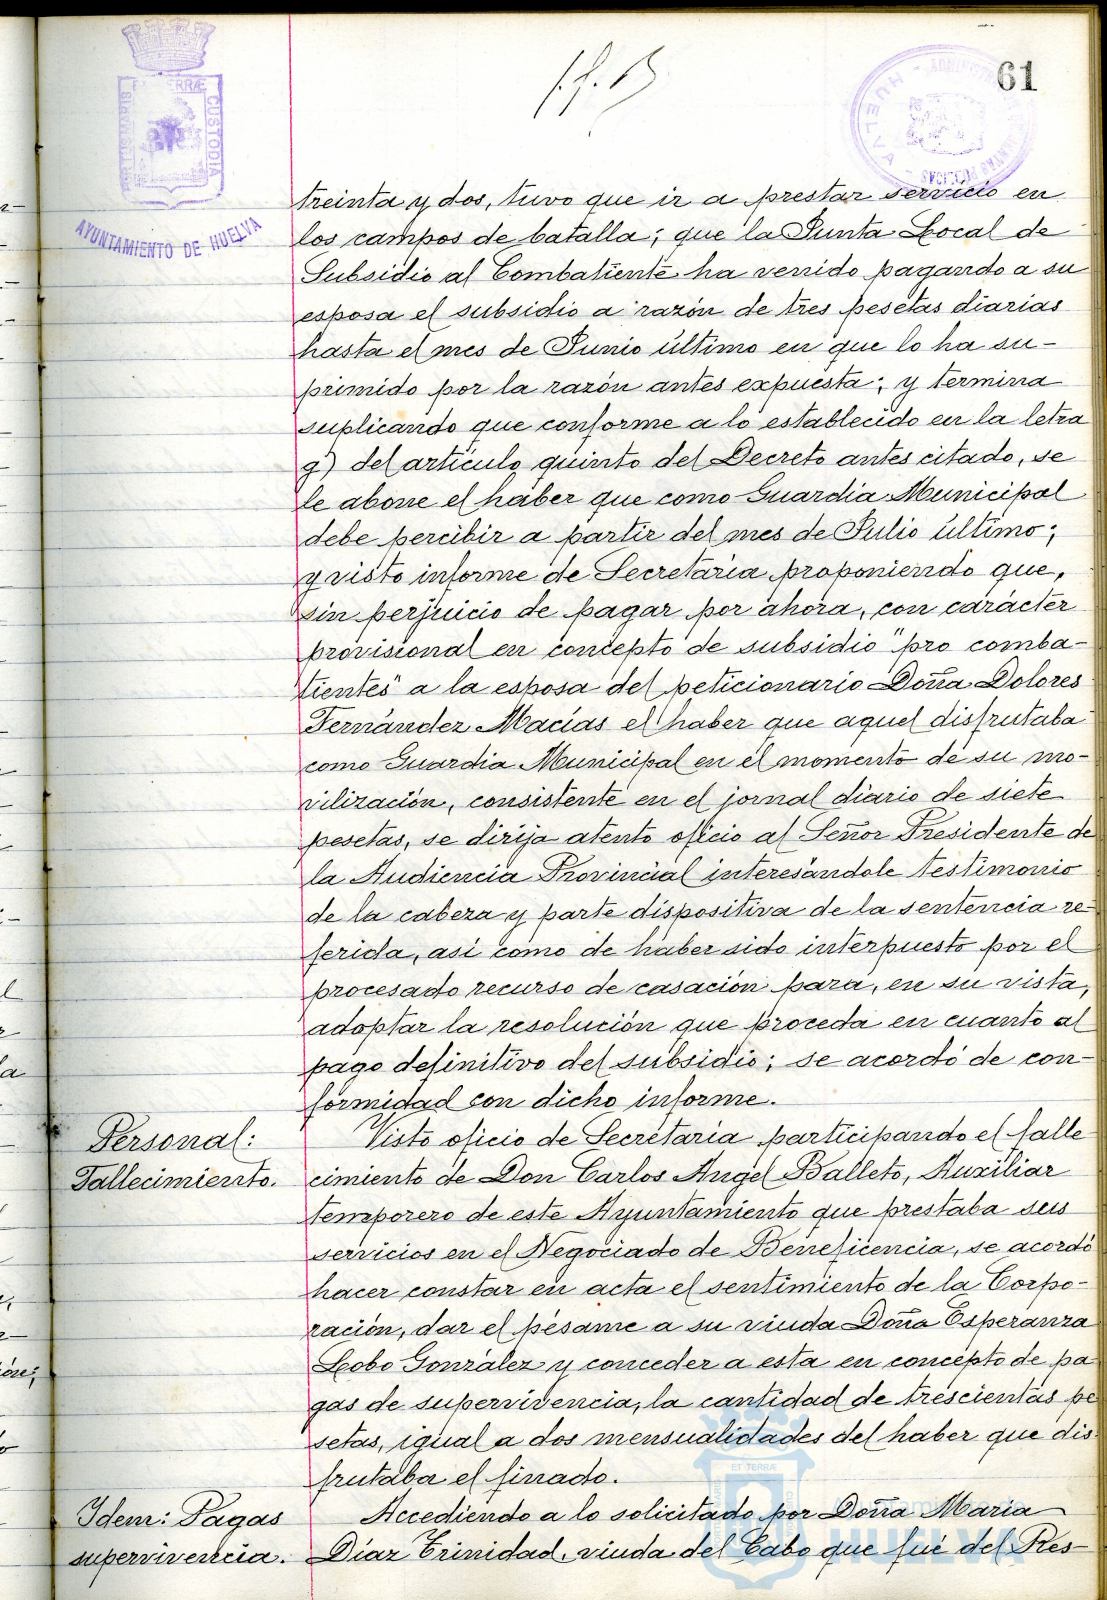 61
AYUNTAMIENTO DE HUELVA
treinta y dos, tuvo que ir a prestar servicio en
los campos de batalla; que la Junta Local de
Subsidio al Combatiente ha venido pagando a su
esposa el subsidio a razón de tres pesetas diarias
hasta el mes de Junio último en que lo ha su-
primido por la razón antes expuesta; y termina
suplicando que conforme a lo establecido en la letra
g) del artículo quinto del Decreto antes citado, se
le abone el haber que como Guardia Municipal
debe percibir a partir del mes de Julio último;
y visto informe de Secretaría proponiendo que,
sin perjuicio de pagar por ahora, con carácter
provisional en concepto de subsidio "pro comba-
tientes" a la esposa del peticionario Doña Dolores
Fernández Macías el haber que aquel disfrutaba
como Guardia Municipal en el momento de su mo-
vilización, consistente en el jornal diario de siete
pesetas, se dirija atento oficio al Señor Presidente de
la Audiencia Provincial interesándole testimonio
de la cabeza y parte dispositiva de la sentencia re-
ferida, así como de haber sido interpuesto por el
procesado recurso de casación para, en su vista,
adoptar la resolución que proceda en cuanto al
pago definitivo del subsidio; se acordó de con-
formidad con dicho informe.
Personal:
Fallecimiento.
Visto oficio de Secretaría participando el falle
cimiento de Don Carlos Angel Balleto, Auxiliar
temporero de este Ayuntamiento que prestaba sus
servicios en el Negociado de Beneficencia, se acordó
hacer constar en acta el sentimiento de la Corpo-
ración, dar el pésame a su viuda Doña Esperanza
Lobo González y conceder a esta en concepto de pa
gas de supervivencia, la cantidad de trescientas pe
setas, igual a dos mensualidades del haber que dis
frutaba el finado.
Idem: Pagas
supervivencia.
Accediendo a lo solicitado por Doña María
Díaz Trinidad, viuda del Cabo que fué del Res-